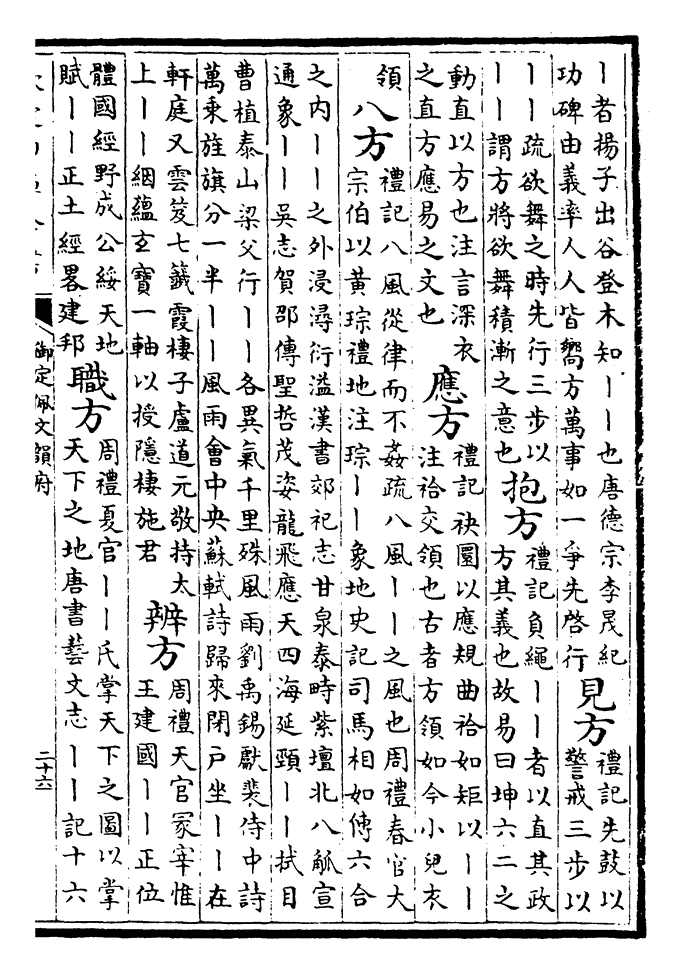 ｜者揚子出谷登木知｜｜也唐德宗李晟紀
功碑由義率人人皆嚮方萬事如一爭先啓行
見方
禮記先鼓以
警戒三步以
｜｜疏欲舞之時先行三步以
｜｜謂方將欲舞積漸之意也
抱方
禮記負繩｜｜者以直其政
方其義也故易曰坤六二之
動直以方也注言深衣
之直方應易之文也
應方
禮記袂圜以應規曲袷如矩以｜｜
注袷交領也古者方領如今小兒衣
領
八方
禮記八風從律而不姦疏八風｜｜之風也周禮春官大
宗伯以黃琮禮地注琮｜｜象地史記司馬相如傳六合
之内｜｜之外浸潯衍溢漢書郊祀志甘泉泰畤紫壇北八觚宣
通象｜｜吳志賀邵傳聖哲茂姿龍飛應天四海延頸｜｜拭目
曹植泰山梁父行｜｜各異氣千里殊風雨劉禹錫獻裴侍中詩
萬乘旌旗分一半｜｜風雨會中央蘇軾詩歸來閉戶坐｜｜在
軒庭又雲笈七籤霞棲子盧道元敬持太
上｜｜絪蘊玄寶一軸以授隱棲施君
辨方
周禮天官冢宰惟
王建國｜｜正位
體國經野成公綏天地
賦｜｜正土經畧建邦
職方
周禮夏官｜｜氏掌天下之圖以掌
天下之地唐書藝文志｜｜記十六
御定佩文韻府
二十六